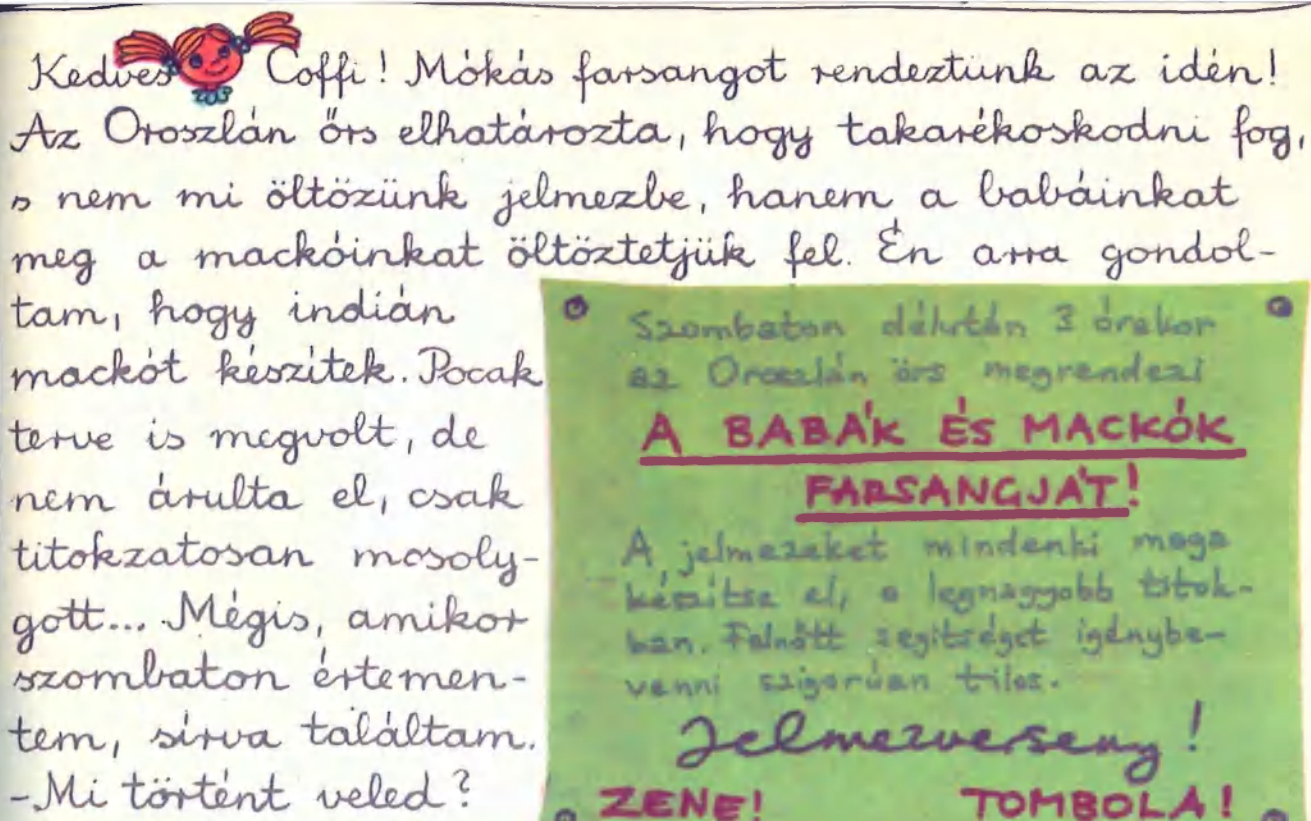 Kedves Coffi! Mókás farsangot rendeztünk az idén!
Az Oroszlán őrs elhatározta, hogy takarékoskodni fog,
s nem mi öltözünk jelmezbe, hanem a babáinkat
meg a mackóinkat öltöztetjük fel. Én arra gondol-
tam, hogy indián
mackót készítek. Pocak
terve is megvolt, de
nem árulta el, csak
titokzatosan mosoly-
gott... Mégis, amikor
szombaton értemen-
tem, sírva találtam.
-Mi történt veled?
Szombaton délután 3 órakor
az Oroszlán őrs megrendezi
A BABÁK ÉS MACKÓK
FARSANGJÁT!
A jelmezeket mindenki maga
készítse el, a legnagyobb titok-
ban. Felnőtt segítséget igénybe-
venni szigorúan tilos.
Jelmezverseny!
ZENE! TOMBOLA!